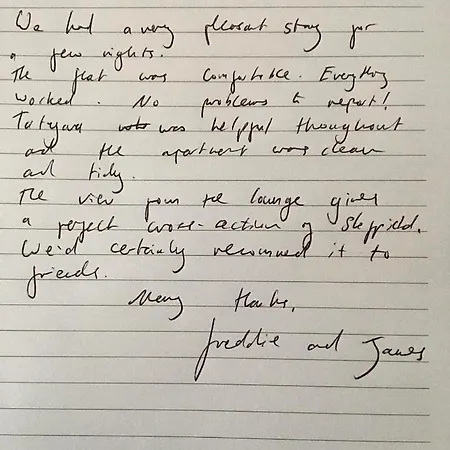 We had a very pleasant stay for
a few nights.
The flat was comfortable. Everything
worked. No problems to report!
Tatyana was helpful throughout
and the apartment was clean
and tidy.
The view from the lounge gives
a perfect cross-section of Sheffield.
We'd certainly recommend it to
friends.
Many thanks,
Freddie and James